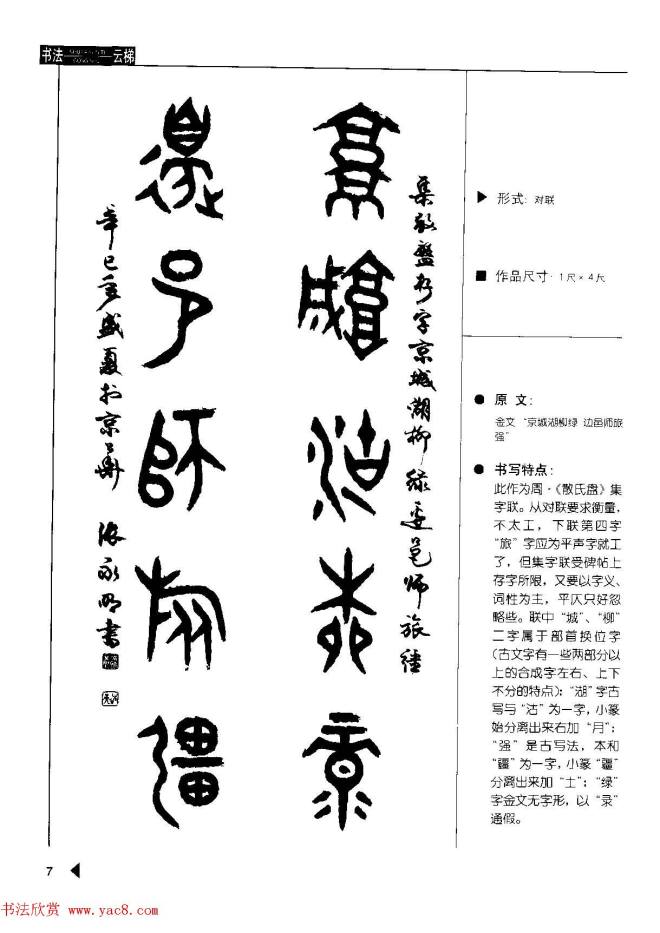 书法
云梯
京城湖柳绿
边邑师旅强
集散盘打字京城湖柳绿边邑师旅强
辛巳年盛夏于京华
张永明书
形式:对联
作品尺寸·1尺×4尺
原文:
金文“京城湖柳绿 边邑师旅
强”
书写特点:
此作为周·《散氏盘》集
字联。从对联要求衡量,
不太工,下联第四字
“旅”字应为平声字就工
了,但集字联受碑帖上
存字所限,又要以字义、
词性为主,平仄只好忽
略些。联中“城”、“柳”
二字属于部首换位字
(古文字有一些两部分以
上的合成字左右、上下
不分的特点);“湖”字古
写与“沽”为一字,小篆
始分离出来右加“月”;
“强”是古写法,本和
“疆”为一字,小篆“疆”
分离出来加“土”;“绿”
字金文无字形,以“录”
通假。
7
书法欣赏 www.yac8.com